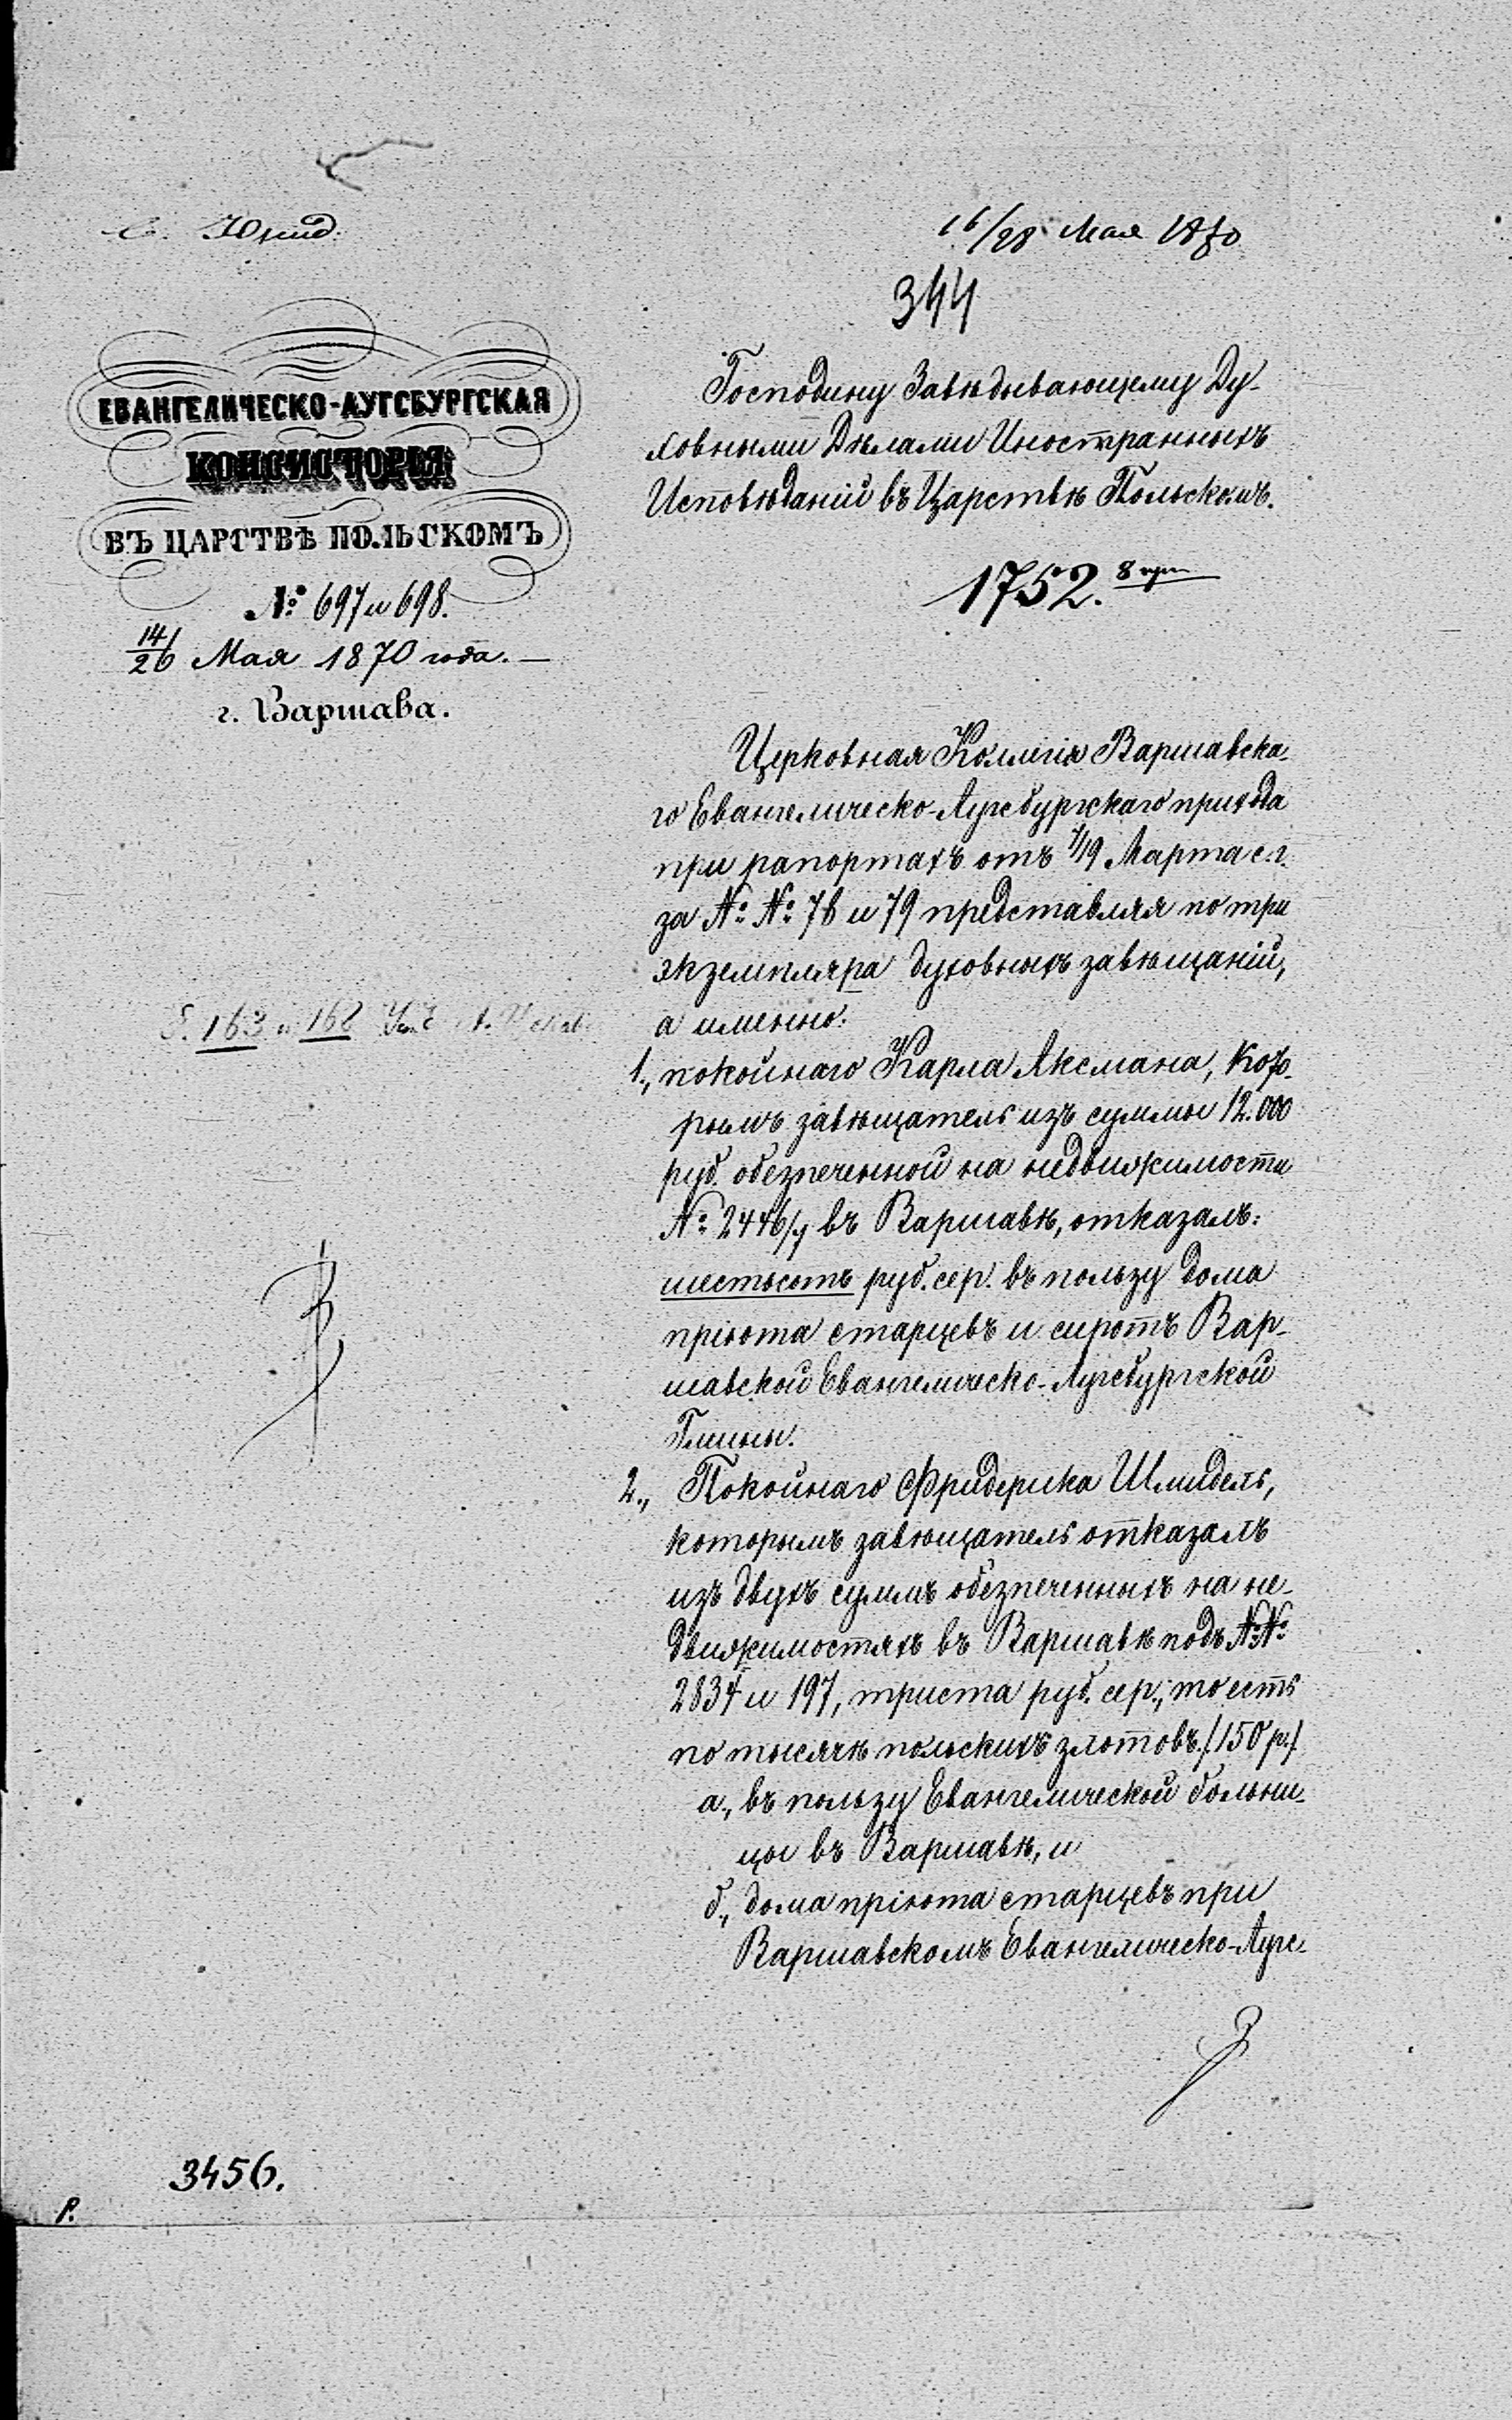 Юрид.
16/28 Мая 1870
344
ЕВАНГЕЛИЧЕСКО-АУГСБУРГСКАЯ
КОНСИСТОРІЯ
ВЪ ЦАРСТВѢ ПОЛЬСКОМЪ
№ 697 и 698.
14/26 Мая 1870 года.—
г. Варшава.
Господину Завѣдывающему Ду-
ховными Дѣлами Иностранныхъ
Исповѣданій въ Царствѣ Польскомъ.
1752.
Церковная Коллегія Варшавска-
го Евангелическо-Аугсбургскаго прихода
при рапортахъ отъ 7/19 Марта с. г.
за №№ 78 и 79 представляя по три
экземпляра духовныхъ завѣщаній,
а именно:
1., покойнаго Карла Яксмана, кото-
рымъ завѣщатель изъ суммы 12.000
руб. обезпеченной на недвижимости
№ 2446/7 въ Варшавѣ, отказалъ:
шестьсотъ руб. сер. въ пользу дома
пріюта старцевъ и сиротъ Вар-
шавской Евангелическо-Аугсбургской
Гмины.
2., Покойнаго Фридерика Шмидель,
которымъ завѣщатель отказалъ
изъ двухъ суммъ обезпеченныхъ на не-
движимостяхъ въ Варшавѣ подъ №№
2834 и 197, триста руб. сер., то есть
по тысячѣ польскихъ злотовъ /150 р./
а., въ пользу Евангелической больни-
цы въ Варшавѣ, и
б., дома пріюта старцевъ при
Варшавскомъ Евангелическо-Аугс-
163 и 168
3456.